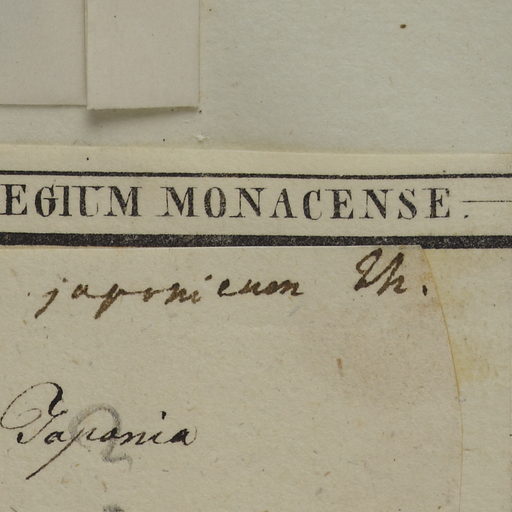 EGIUM MONACENSE.
japonicum Th.
Japonia